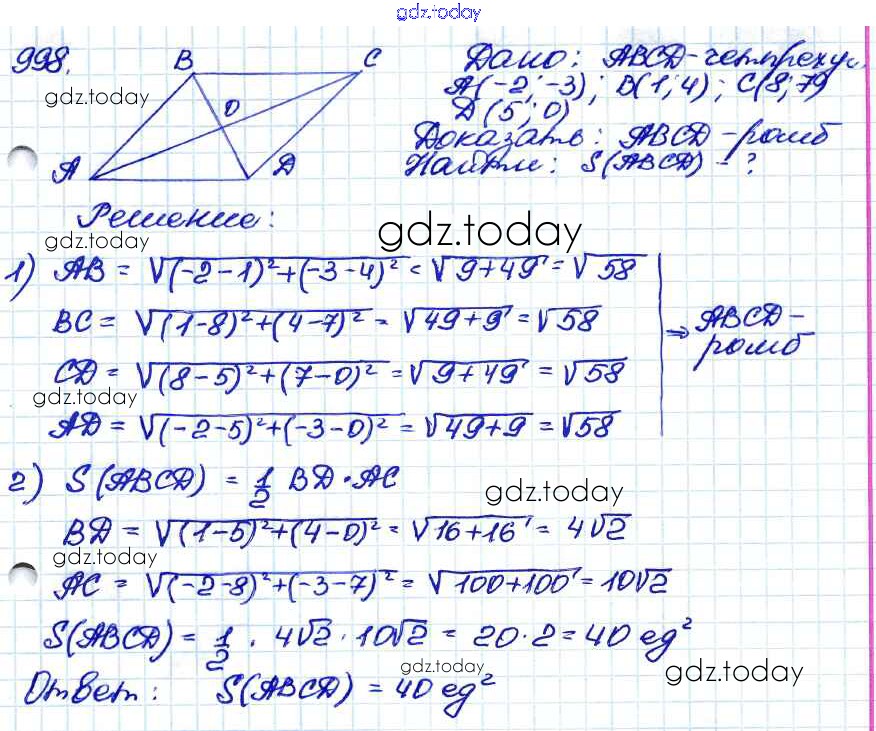 gdz.today
998.
B
C
O
A
D
Дано: ABCD-четыреху.
A(-2; -3); B(1; 4); C(8; 7)
D(5; 0)
Доказать: ABCD-ромб
Найти: S(ABCD) - ?
gdz.today
Решение:
gdz.today
gdz.today
1) AB = √(-2-1)²+(-3-4)² = √9+49 = √58
BC = √(1-8)²+(4-7)² = √49+9 = √58
CD = √(8-5)²+(7-0)² = √9+49 = √58
gdz.today
AD = √(-2-5)²+(-3-0)² = √49+9 = √58
⇒ ABCD-
ромб
2) S(ABCD) = 1/2 BD·AC
gdz.today
BD = √(1-5)²+(4-0)² = √16+16 = 4√2
gdz.today
AC = √(-2-8)²+(-3-7)² = √100+100 = 10√2
S(ABCD) = 1/2 · 4√2 · 10√2 = 20·2 = 40 ед²
gdz.today
gdz.today
Ответ: S(ABCD) = 40 ед²